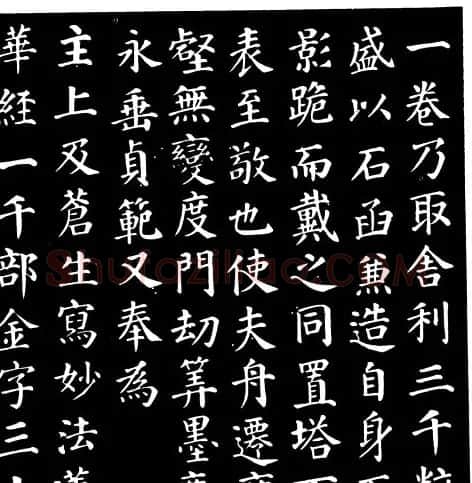 一卷乃取舍利三千粒
盛以石函兼造自身
影跪而戴之同置塔
表至敬也使夫舟遷
壑無變度門刧筭墨
永垂貞範又奉為
主上及蒼生寫妙法
華經一千部金字三
Shufaziliao.COM